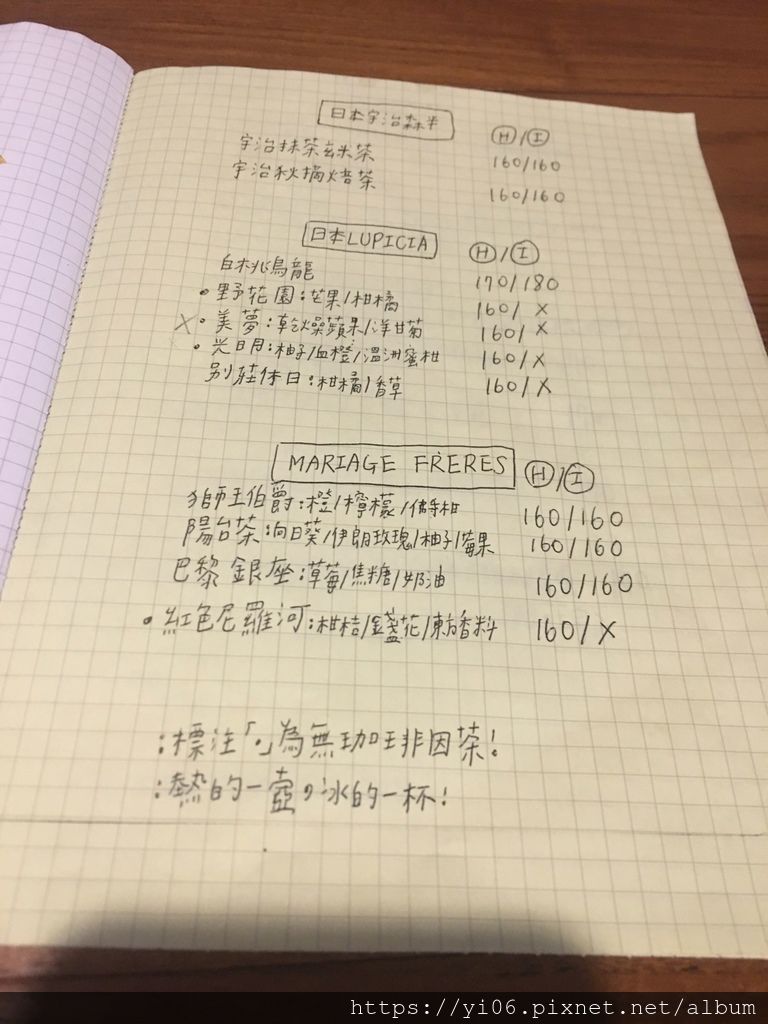 日本宇治森半 Ⓗ/Ⓘ
宇治抹茶玄米茶 160/160
宇治秋摘焙茶 160/160
日本LUPICIA Ⓗ/Ⓘ
白桃烏龍 170/180
•野花園:芒果/柑橘 160/ X
X •美夢:乾燥蘋果/洋甘菊 160/ X
•光明:柚子/血橙/溫洲蜜柑 160/X
別莊休日:柑橘/香草 160/X
MARIAGE FRÈRES Ⓗ/Ⓘ
獅王伯爵:橙/檸檬/佛手柑 160/160
陽台茶:向日葵/伊朗玫瑰/柚子/莓果 160/160
巴黎銀座:草莓/焦糖/奶油 160/160
•紅色尼羅河:柑桔/金盞花/東方香料 160/X
:標注「•」為無珈琲非因茶!
:熱的一壺,冰的一杯!
https://yi06.pixnet.net/album